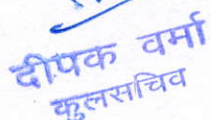 दीपक वर्मा
कुलसचिव